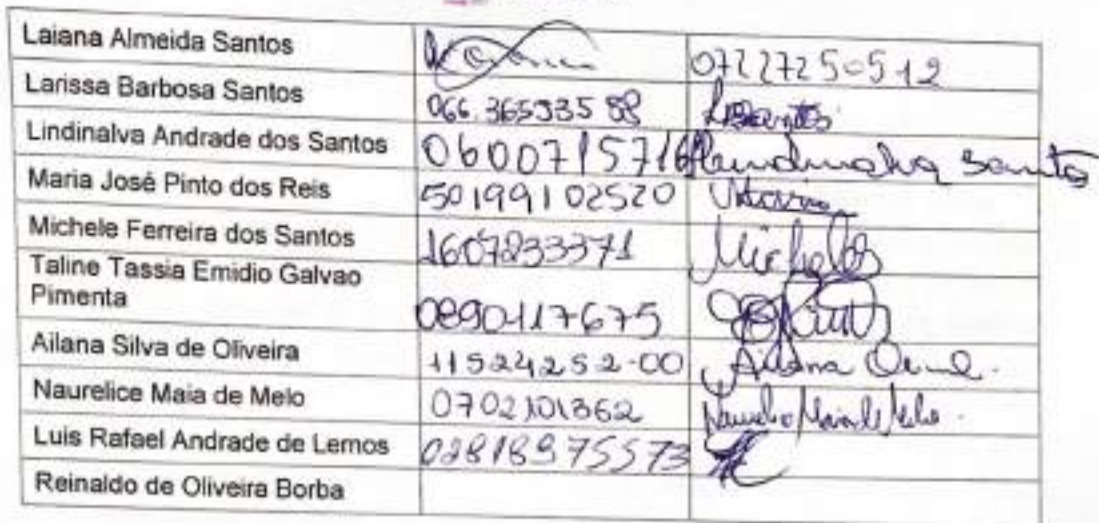 Laiana Almeida Santos 07227250512
Larissa Barbosa Santos 066.36553588 LBSantos
Lindinalva Andrade dos Santos 0600715716 Lindinalva Santos
Maria José Pinto dos Reis 50199102520 Maria
Michele Ferreira dos Santos 1607233371 Michele
Taline Tassia Emidio Galvao
Pimenta 0890117675
Ailana Silva de Oliveira 11524252-00 Ailana
Naurelice Maia de Melo 0702101362 Naurelice Maia de Melo
Luis Rafael Andrade de Lemos 02818975573
Reinaldo de Oliveira Borba